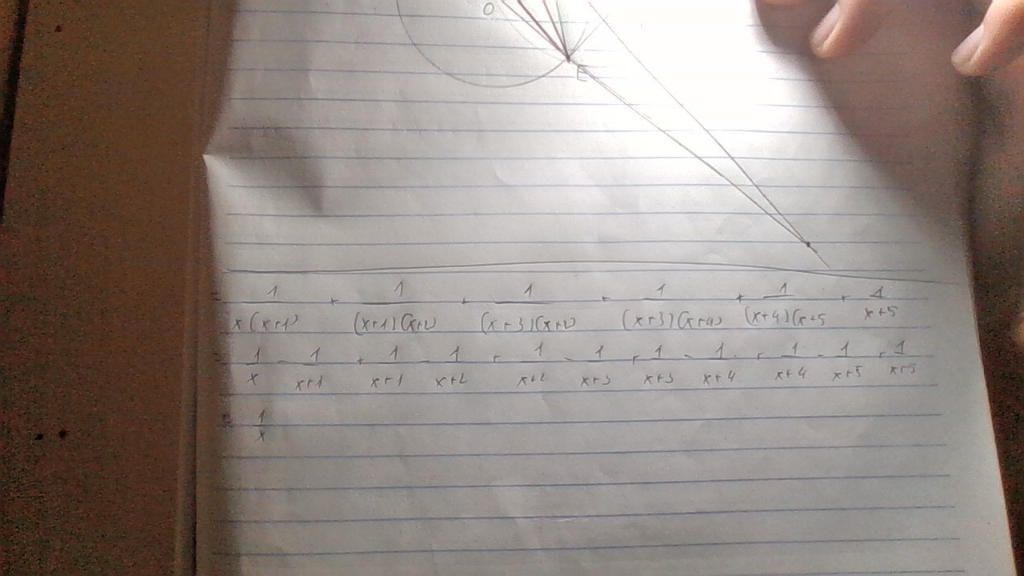 O
E
= 1/x(x+1) + 1/(x+1)(x+2) + 1/(x+3)(x+2) + 1/(x+3)(x+4) + 1/(x+4)(x+5 + 1/x+5
= 1/x - 1/x+1 + 1/x+1 - 1/x+2 + 1/x+2 - 1/x+3 + 1/x+3 - 1/x+4 + 1/x+4 - 1/x+5 + 1/x+5
= 1/x